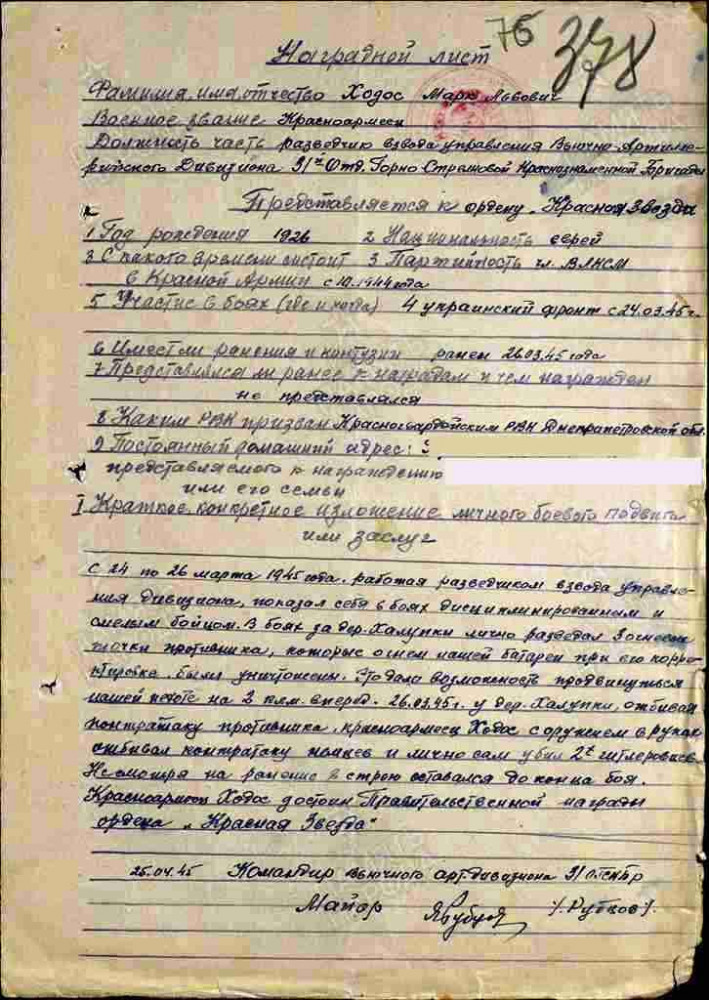 76
378
Наградной лист
Фамилия, имя, отчество Ходос Марк Львович
Военное звание Красноармеец
Должность часть разведчик взвода управления Вьючно-Артилле-
рийского Дивизиона 31й Отд. Горно Стрелковой Краснознаменной Бригады
Представляется к ордену „Красная Звезда
1 Год рождения 1926 2 Национальность еврей
3 С какого времени состоит 3 Партийность чл. ВЛКСМ
в Красной Армии с 10.1944 года
5 Участие в боях (где и когда) 4 украинский фронт с 24.03.45 г.
6 Имест ли ранения и контузии ранен 26.03.45 года
7 Представлялся ли ранее к наградам и чем награжден
не представлялся
8 Каким РВК призван Красногвардейским РВК Днепрапетровской обл.
9 Постоянный домашний адрес:
представляемого к награждению
или его семьи
I Краткое, конкретное изложение личного боевого подвига
или заслуг
с 24 по 26 марта 1945 года, работая разведчиком взвода управле-
ния дивизиона, показал себя в боях дисциплинированным и
смелым бойцом. В боях за дер. Халупки лично разведал 3 огневые
точки противника, которые огнем нашей батареи при его корре-
ктировке были уничтожены. Это дало возможность продвинуться
нашей пехоте на 2 клм. вперед. 26.03.45 г. у дер. Халупки, отбивая
контратаку противника, красноармеец Ходос с оружием в руках
отбивал контратаку немцев и лично сам убил 2х гитлеровцев.
Несмотря на ранение в строю оставался до конца боя.
Красноармеец Ходос достоин Правительственной награды
ордена „Красная Звезда"
25.04.45 Командир вьючного артдивизиона 31 огксбр
Майор /Рубцов/.